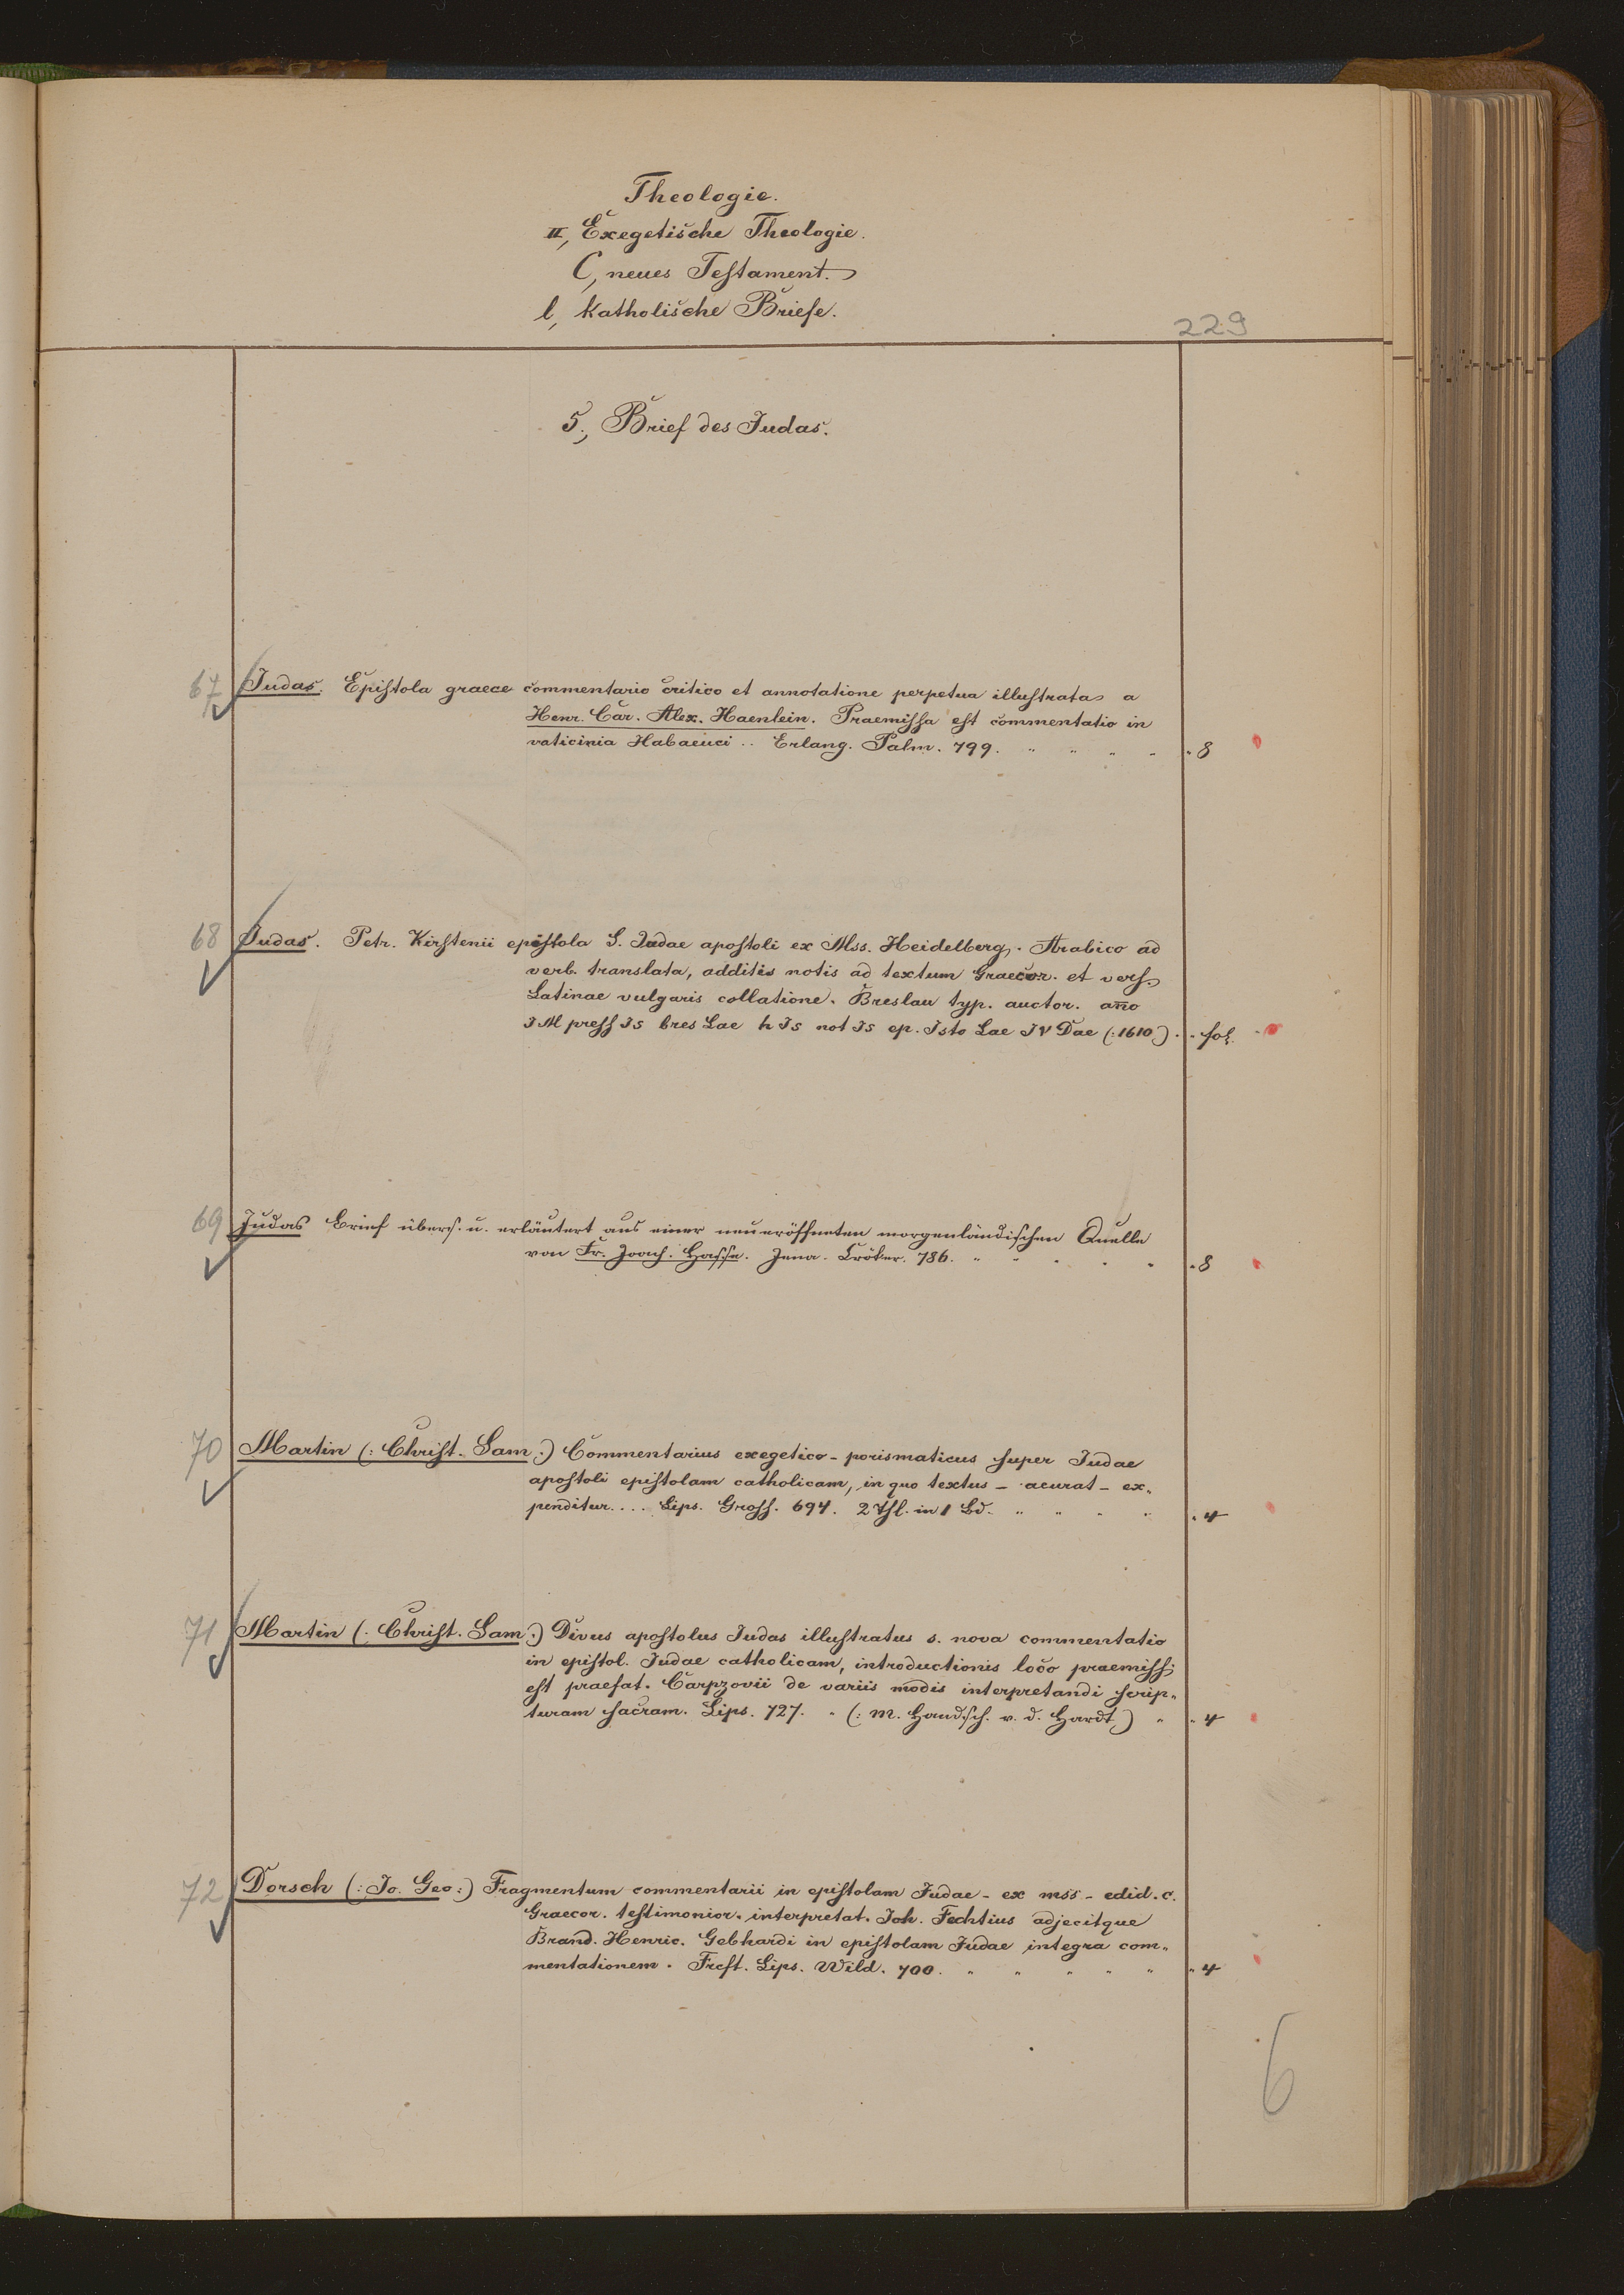 Theologie.
II, Exegetische Theologie.
C, neues Testament.
l, Katholische Briefe.
229
5., Brief des Judas.
67 Judas. Epistola graece commentario critico et annotatione perpetua illustrata a
Henr. Car. Alex. Haenlein. Praemissa est commentatio in
vaticinia Habacuci .. Erlang. Palm. 799. " " " " " 8
68 Judas. Petr. Kirstenii epistola S. Judae apostoli ex Mss. Heidelberg. Arabico ad
verb. translata, additis notis ad textum Graecor. et vers.
Latinae vulgaris collatione. Breslau typ. auctor. año
IM press Is bres Lae h Is not Is ep. Isto Lae IV Dae (:1610.) . . fol.
69 Judas Brief übers. u. erläutert aus einer neueröffneten morgenländischen Quelle
von Fr. Joach. Hasse. Jena. Cröker. 786. " " " " " " 8
70 Martin (: Christ. Sam :) Commentarius exegetico-porismaticus super Judae
apostoli epistolam catholicam, in quo textus – acurat – ex-
penditur.... Lips. Gross. 694. 2 Thl. in 1 Bd. " " " " " 4
71 Martin (: Christ. Sam :) Divus apostolus Judas illustratus s. nova commentatio
in epistol. Judae catholicam, introductionis loco praemiss;
est praefat. Carpzovii de variis modis interpretandi scrip-
turam sacram. Lips. 727. " (: m. Handsch. v. d. Hardt.) " " 4
72 Dorsch (: Jo. Geo :) Fragmentum commentarii in epistolam Judae – ex mss – edid. c.
Graecor. testimonior. interpretat. Joh. Fechtius adjecitque
Brand. Henric. Gebhardi in epistolam Judae integra com-
mentationem. Frcft. Lips. Wild. 700. " " " " " " 4
6